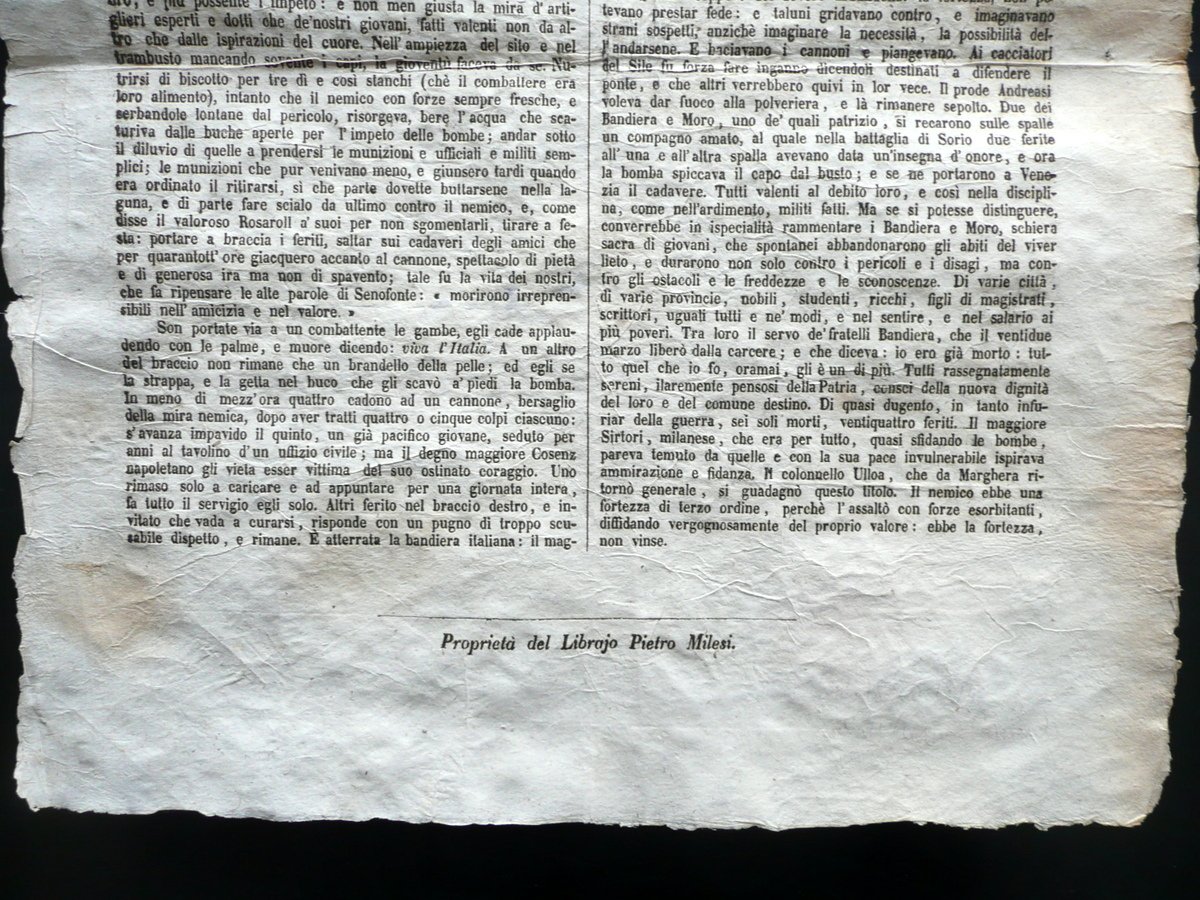 e più possente l'impeto: e non men giusta la mira d'arti-
glieri esperti e dotti che de'nostri giovani, fatti valenti non da al-
tro che dalle ispirazioni del cuore. Nell'ampiezza del sito e nel
trambusto mancando sovente i capi, la gioventù faceva da se. Nu-
trirsi di biscotto per tre dì e così stanchi (chè il combattere era
loro alimento), intanto che il nemico con forze sempre fresche, e
serbandole lontane dal pericolo, risorgeva, bere l'acqua che sca-
turiva dalle buche aperte per l'impeto delle bombe; andar sotto
il diluvio di quelle a prendersi le munizioni e ufficiali e militi sem-
plici; le munizioni che pur venivano meno, e giunsero tardi quando
era ordinato il ritirarsi, sì che parte dovette buttarsene nella la-
guna, e di parte fare scialo da ultimo contro il nemico, e, come
disse il valoroso Rosaroll a' suoi per non sgomentarli, tirare a fe-
sta: portare a braccia i feriti, saltar sui cadaveri degli amici che
per quarantott' ore giacquero accanto al cannone, spettacolo di pietà
e di generosa ira ma non di spavento; tale fu la vita dei nostri,
che fa ripensare le alte parole di Senofonte: « morirono irrepren-
sibili nell'amicizia e nel valore. »
Son portate via a un combattente le gambe, egli cade applau-
dendo con le palme, e muore dicendo: viva l'Italia. A un altro
del braccio non rimane che un brandello della pelle; ed egli se
la strappa, e la getta nel buco che gli scavò a'piedi la bomba.
In meno di mezz'ora quattro cadono ad un cannone, bersaglio
della mira nemica, dopo aver tratti quattro o cinque colpi ciascuno:
s'avanza impavido il quinto, un già pacifico giovane, seduto per
anni al tavolino d'un uffizio civile; ma il degno maggiore Cosenz
napoletano gli vieta esser vittima del suo ostinato coraggio. Uno
rimaso solo a caricare e ad appuntare per una giornata intera,
fa tutto il servigio egli solo. Altri ferito nel braccio destro, e in-
vitato che vada a curarsi, risponde con un pugno di troppo scu-
sabile dispetto, e rimane. È atterrata la bandiera italiana: il mag-
tevano prestar fede: e taluni gridavano contro, e imaginavano
strani sospetti, anzichè imaginare la necessità, la possibilità del-
l'andarsene. E baciavano i cannoni e piangevano. Ai cacciatori
del Sile fu forza fare inganno dicendoli destinati a difendere il
ponte, e che altri verrebbero quivi in lor vece. Il prode Andreasi
voleva dar fuoco alla polveriera, e là rimanere sepolto. Due dei
Bandiera e Moro, uno de' quali patrizio, si recarono sulle spalle
un compagno amato, al quale nella battaglia di Sorio due ferite
all' una e all'altra spalla avevano data un'insegna d' onore, e ora
la bomba spiccava il capo dal busto; e se ne portarono a Vene-
zia il cadavere. Tutti valenti al debito loro, e così nella discipli-
na, come nell'ardimento, militi fatti. Ma se si potesse distinguere,
converrebbe in ispecialità rammentare i Bandiera e Moro, schiera
sacra di giovani, che spontanei abbandonarono gli abiti del viver
lieto, e durarono non solo contro i pericoli e i disagi, ma con-
tro gli ostacoli e le freddezze e le sconoscenze. Di varie città,
di varie provincie, nobili, studenti, ricchi, figli di magistrati,
scrittori, uguali tutti e ne' modi, e nel sentire, e nel salario ai
più poveri. Tra loro il servo de'fratelli Bandiera, che il ventidue
marzo liberò dalla carcere; e che diceva: io ero già morto: tut-
to quel che io fo, oramai, gli è un di più. Tutti rassegnatamente
sereni, ilaremente pensosi della Patria, consci della nuova dignità
del loro e del comune destino. Di quasi dugento, in tanto infu-
riar della guerra, sei soli morti, ventiquattro feriti. Il maggiore
Sirtori, milanese, che era per tutto, quasi sfidando le bombe,
pareva temuto da quelle e con la sua pace invulnerabile ispirava
ammirazione e fidanza. Il colonnello Ulloa, che da Marghera ri-
tornò generale, si guadagnò questo titolo. Il nemico ebbe una
fortezza di terzo ordine, perchè l'assaltò con forze esorbitanti,
diffidando vergognosamente del proprio valore: ebbe la fortezza,
non vinse.
Proprietà del Librajo Pietro Milesi.